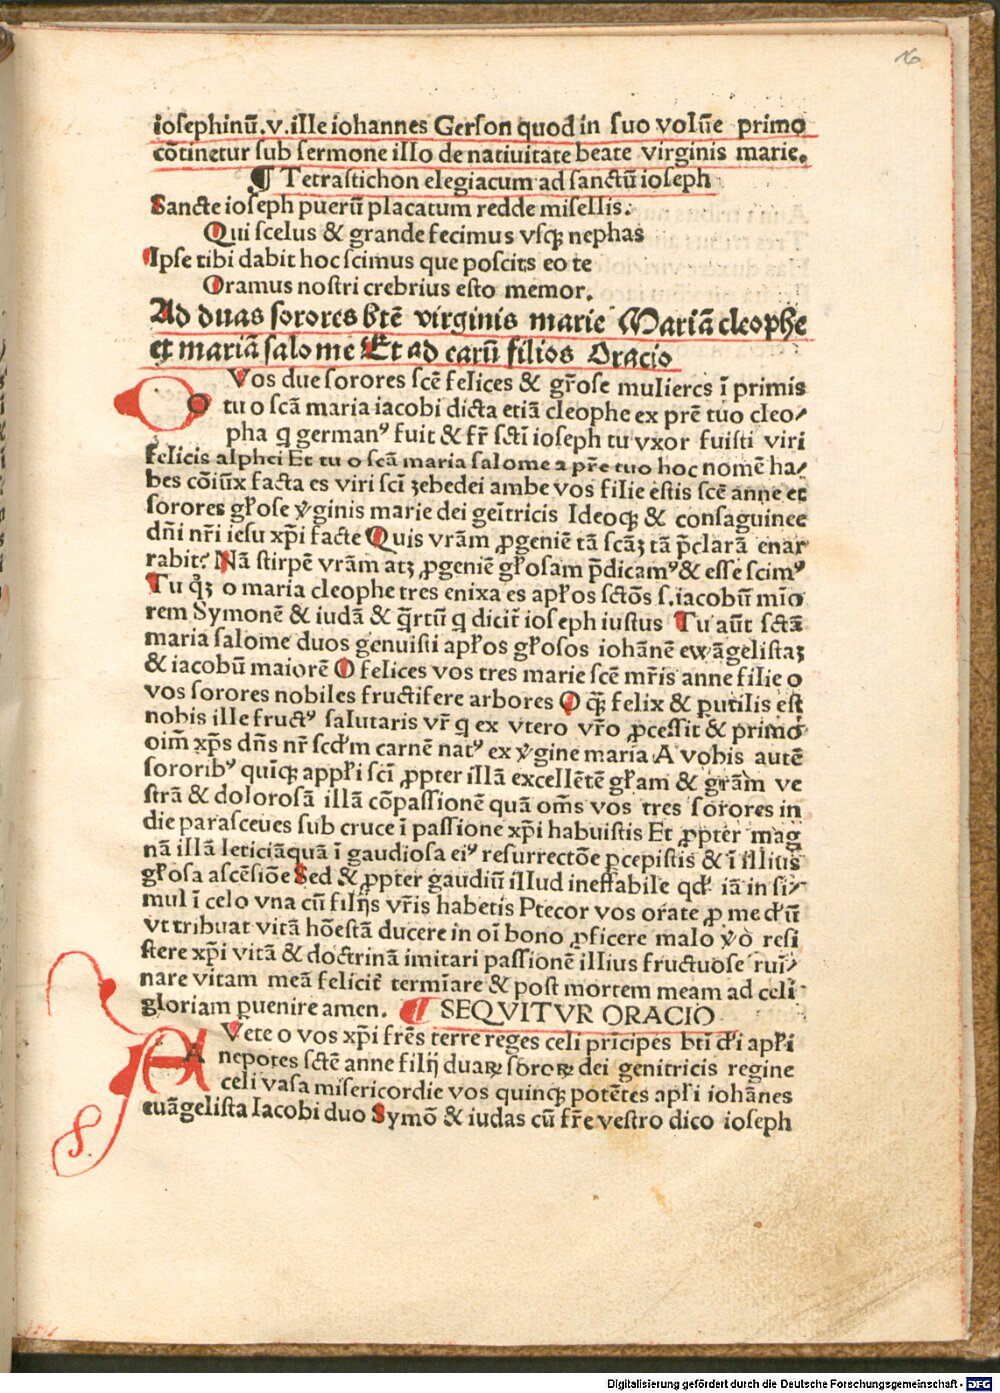 16
iosephinū.v.ille iohannes Gerson quod in suo volūe primo
cōtinetur sub sermone illo de natiuitate beate virginis marie.
¶ Tetrastichon elegiacum ad sanctū ioseph
Sancte ioseph puerū placatum redde misellis.
Qui scelus & grande fecimus vsqꝫ nephas
Ipse tibi dabit hoc scimus que poscits eo te
Oramus nostri crebrius esto memor.
Ad duas sorores btē virginis marie Mariā cleophe
et mariā salome Et ad earū filios Oracio
O Vos due sorores scē felices & gr̄ose mulieres ī primis
tu o scā maria iacobi dicta etiā cleophe ex prē tuo cleo/
pha q germanꝰ fuit & fr̄ scti ioseph tu vxor fuisti viri
felicis alphei Et tu o scā maria salome a pr̄e tuo hoc nomē ha/
bes cōiūx facta es viri sci ̄zebedei ambe vos filie estis scē anne et
sorores gl̄ose v̓ginis marie dei geītricis Ideoqꝫ & consaguinee
dn̄i nr̄i iesu xp̄i facte Quis vrām ꝓgeniē tā scāꝫ tā p̄clarā enar
rabit? Nā stirpē vrām atꝫ ꝓgeniē gl̄osam p̄dicamꝰ & esse scimꝰ
Tu q̄ꝫ o maria cleophe tres enixa es apl̄os sctōs s.iacobū mīo
rem Symonē & iudā & q̄rtū q dicit̄ ioseph iustus Tu aūt sctā
maria salome duos genuisti apl̄os gl̄osos iohānē ewāgelistaꝫ
& iacobū maiorē O felices vos tres marie scē mr̄is anne filie o
vos sorores nobiles fructifere arbores O q̄ꝫ felix & ꝑutilis est
nobis ille fructꝰ salutaris vr̄ q ex vtero vr̄o ꝓcessit & primo
oim̄ xp̄s dn̄s nr̄ scdm̄ carnē natꝰ ex v̓gine maria A vobis autē
sororibꝰ quīqꝫ appl̄i sci ꝓpter illā excellētē gl̄am & grām ve
strā & dolorosā illā cōpassionē quā om̄s vos tres sorores in
die parasceues sub cruce ī passione xp̄i habuistis Et ꝓpter mag
nā illā leticiāquā ī gaudiosa eiꝰ resurrectōe ꝑcepistis & ī illius
gl̄osa ascēsiōe Sed & ꝓpter gaudiū illud ineffabile qd̄ iā in si/
mul ī celo vna cū filijs vr̄is habetis Ptecor vos orate ꝓ me d̄ū
vt tribuat vitā hōestā ducere in oī bono ꝓficere malo v̓o resi
stere xp̄i vitā & doctrinā imitari passionē illius fructuose ruī/
nare vitam meā felicit̄ termīare & post mortem meam ad celi
gloriam ꝑuenire amen. ¶ SEQVITVR ORACIO
A Vete o vos xp̄i frēs terre reges celi pricipes bt̄i d̄i apl̄i
nepotes sctē anne filij duaꝝ soroꝝ dei genitricis regine
celi vasa misericordie vos quinqꝫ potētes apl̄i iohānes
euāgelista Iacobi duo Symō & iudas cū fr̄e vestro dico ioseph
Digitalisierung gefördert durch die Deutsche Forschungsgemeinschaft - DFG